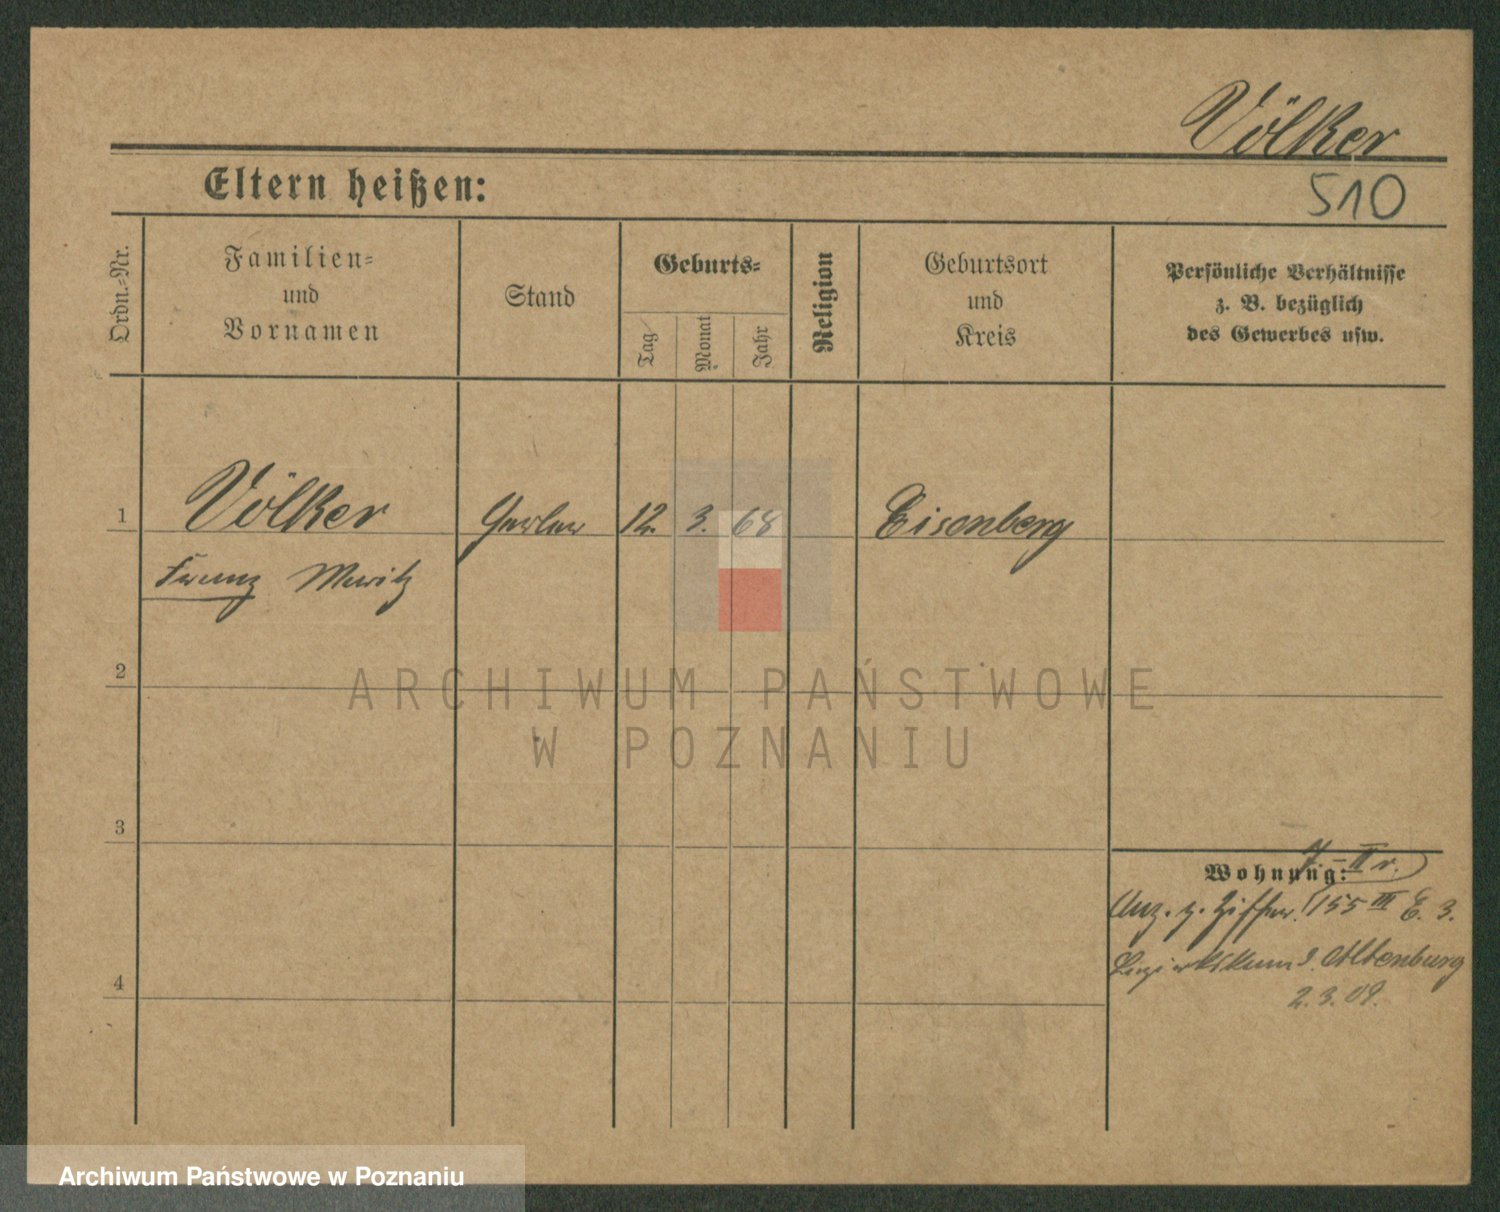 Völker
Eltern heißen:
510
Ordn.-Nr.
Familien-
und
Vornamen
Stand
Geburts-
Tag
Monat
Jahr
Religion
Geburtsort
und
Kreis
Persönliche Verhältnisse
z. B. bezüglich
des Gewerbes usw.
1
Völker
Gerber
12.
3.
68
Eisenberg
Franz Moritz
2
ARCHIWUM PAŃSTWOWE
W POZNANIU
3
Wohnung:
II r.
Anz. z. Ziffer. 155 III E. 3.
Altenburg
2. 3. 09.
4
Archiwum Państwowe w Poznaniu